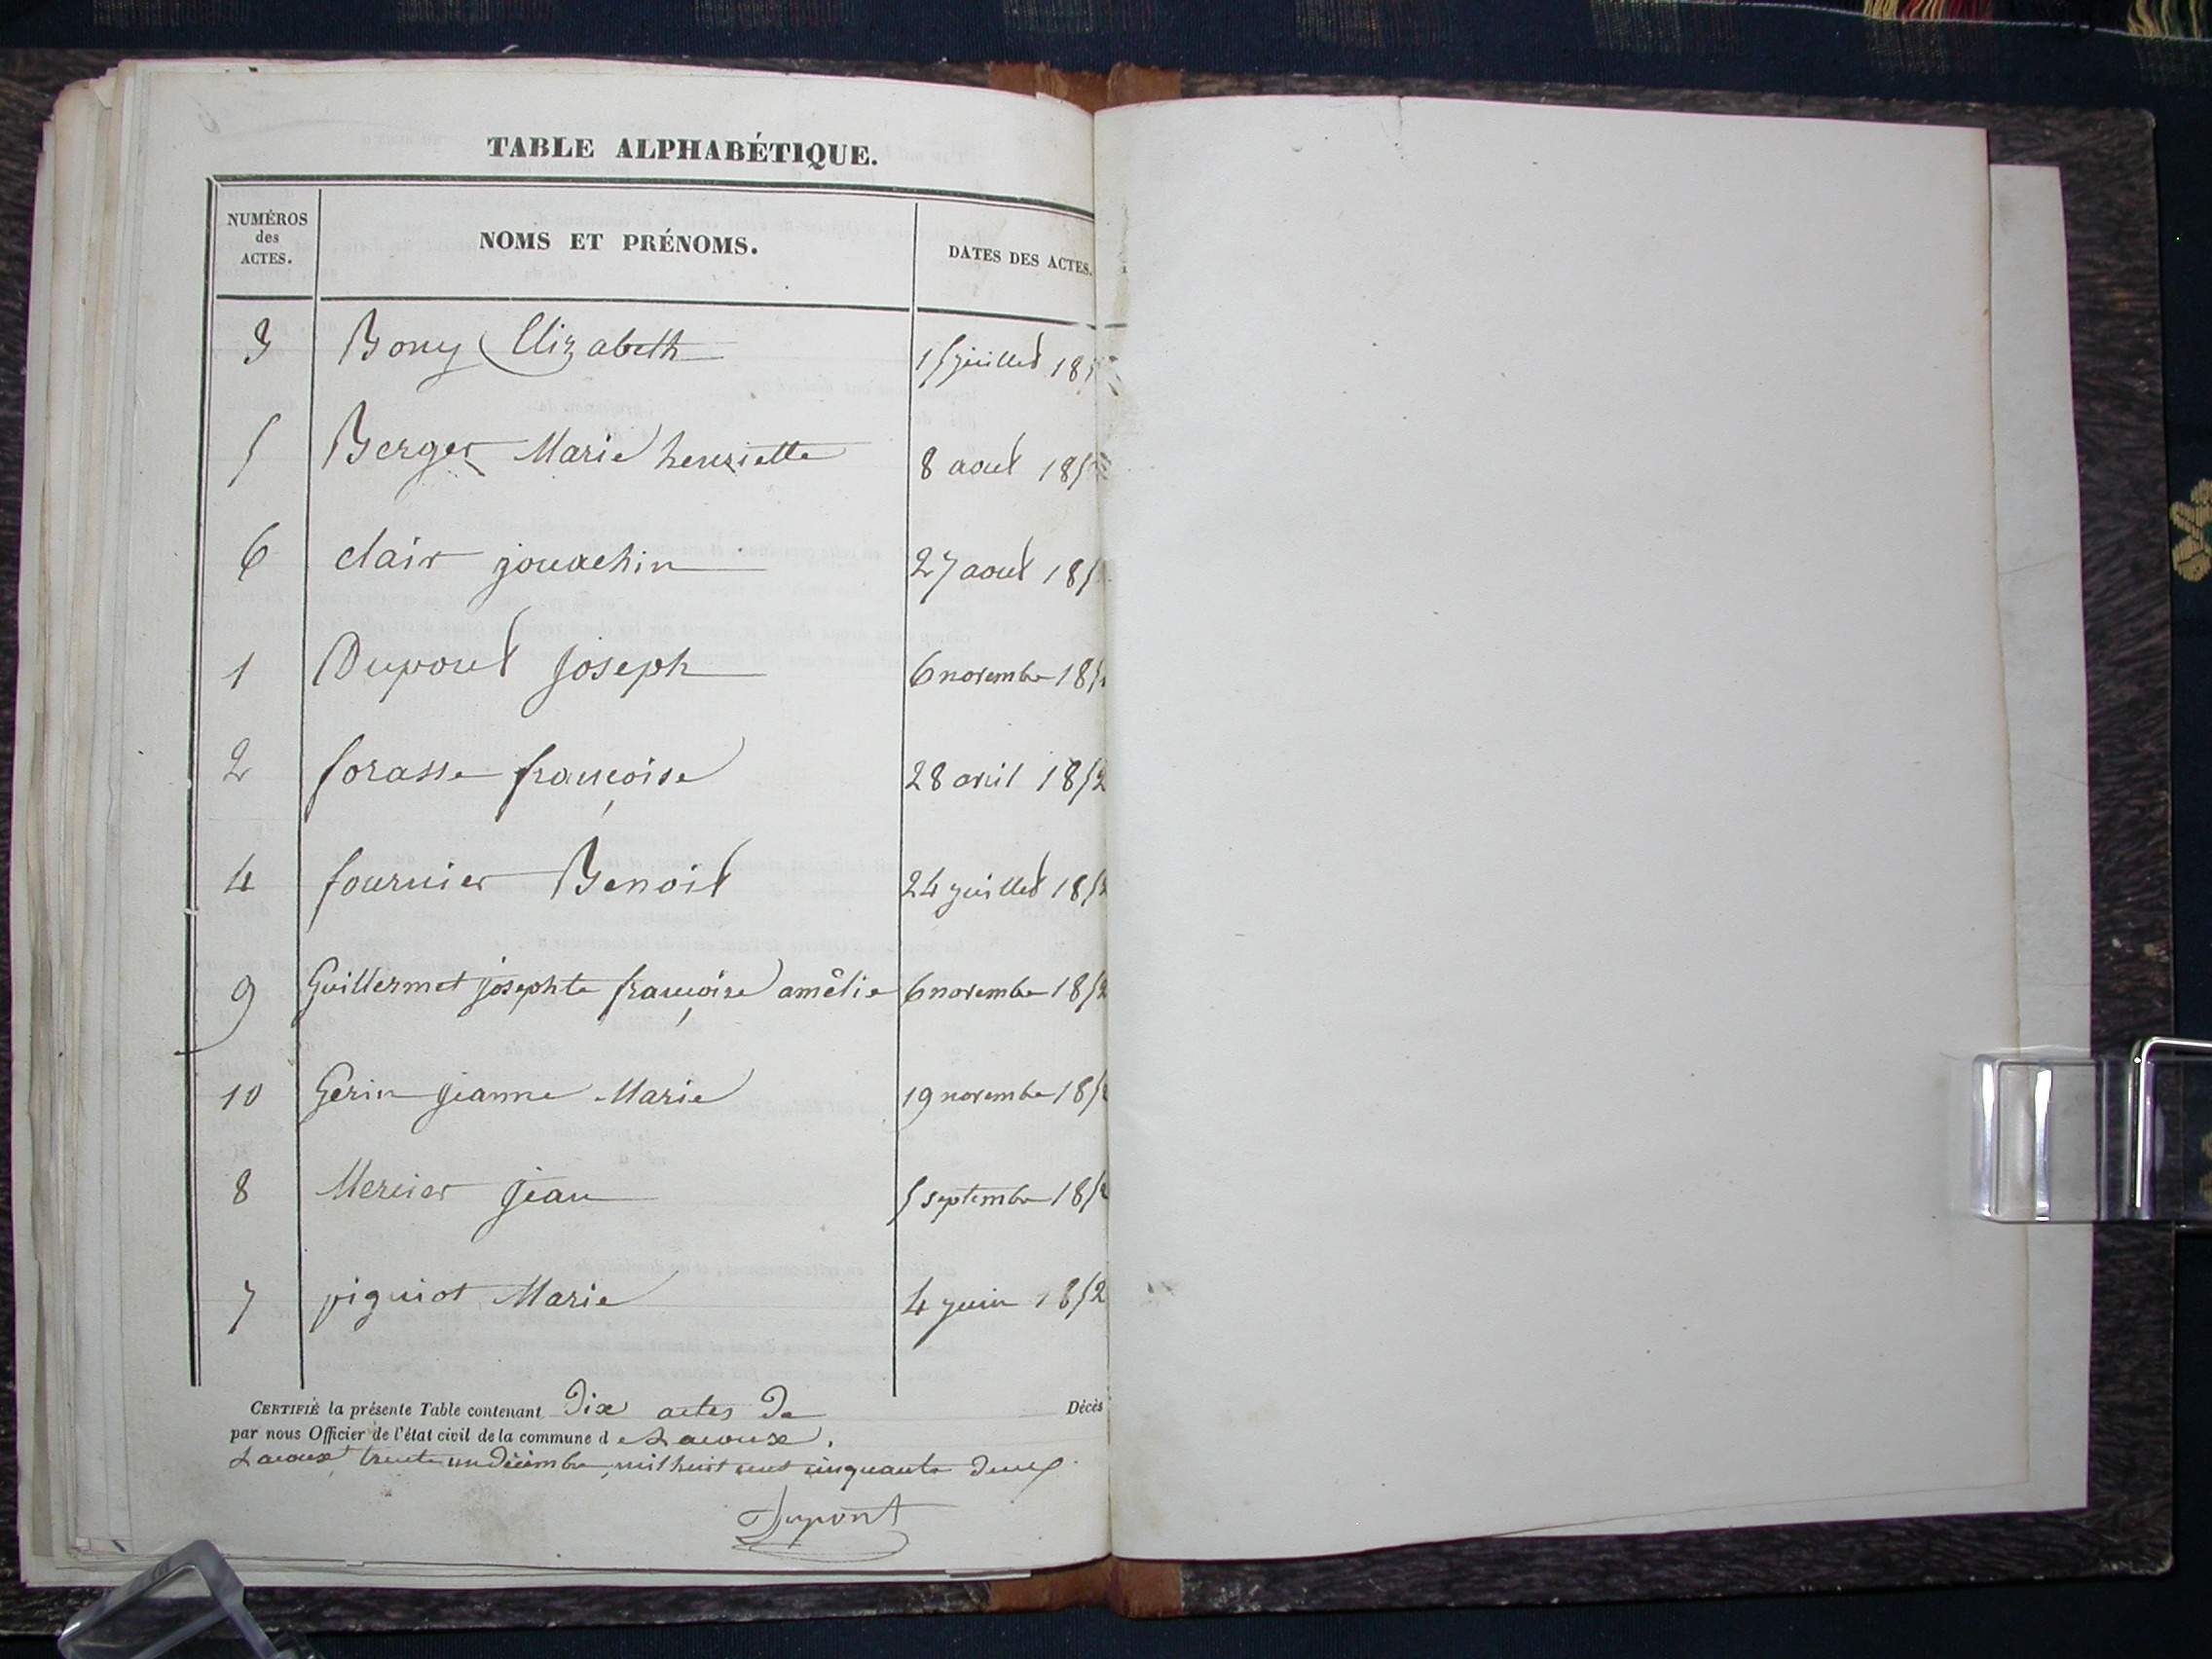 TABLE ALPHABÉTIQUE.
NUMÉROS des ACTES. NOMS ET PRÉNOMS. DATES DES ACTES.
3 Bony Elizabeth 15 juillet 185
5 Berger Marie henriette 8 aout 185
6 clair jouachin 27 aout 185
1 Dupont Joseph 6 novembre 185
2 forasse françoise 28 avril 1852
4 fournier Benoit 24 juillet 1852
9 Guillermet josephte françoise amélie 6 novembre 1852
10 Gerin jeanne Marie 19 novembre 1852
8 Mercier jean 5 septembre 1852
7 piguiot Marie 4 juin 1852
CERTIFIÉ la présente Table contenant Dix actes De Décès
par nous Officier de l'état civil de la commune de Lacoux.
Lacoux trente un Décembre, mil huit cent cinquante Deux
Dupont